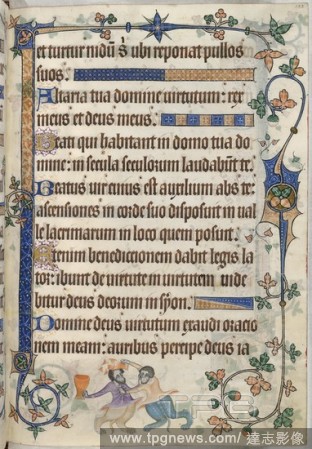 et turtur nidū s̄ ubi reponat pullos
suos.
Altaria tua domine uirtutum: rex
meus et deus meus.
Beati qui habitant in domo tua do
mine: in secula seculorum laudabūt te.
Beatus uir cuius est auxilium abs te:
ascensiones in corde suo disposuit in ual
le lacrimarum in loco quem posuit.
Etenim benedictionem dabit legis la
tor: ibunt de uirtute in uirtutem uide
bitur deus deorum in syon.
Domine deus uirtutum exaudi oracio
nem meam: auribus percipe deus ia
TPG
www.tpgnews.com/達志影像